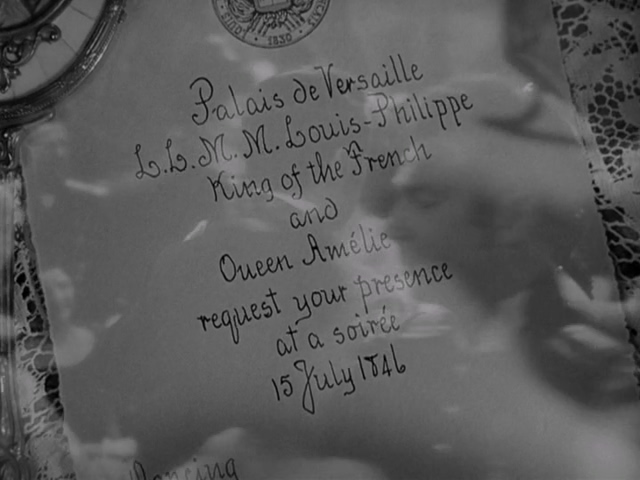 LOUIS
1830
Palais de Versaille
L.L.M.M. Louis-Philippe
King of the French
and
Queen Amélie
request your presence
at a soirée
15 July 1846
Dancing